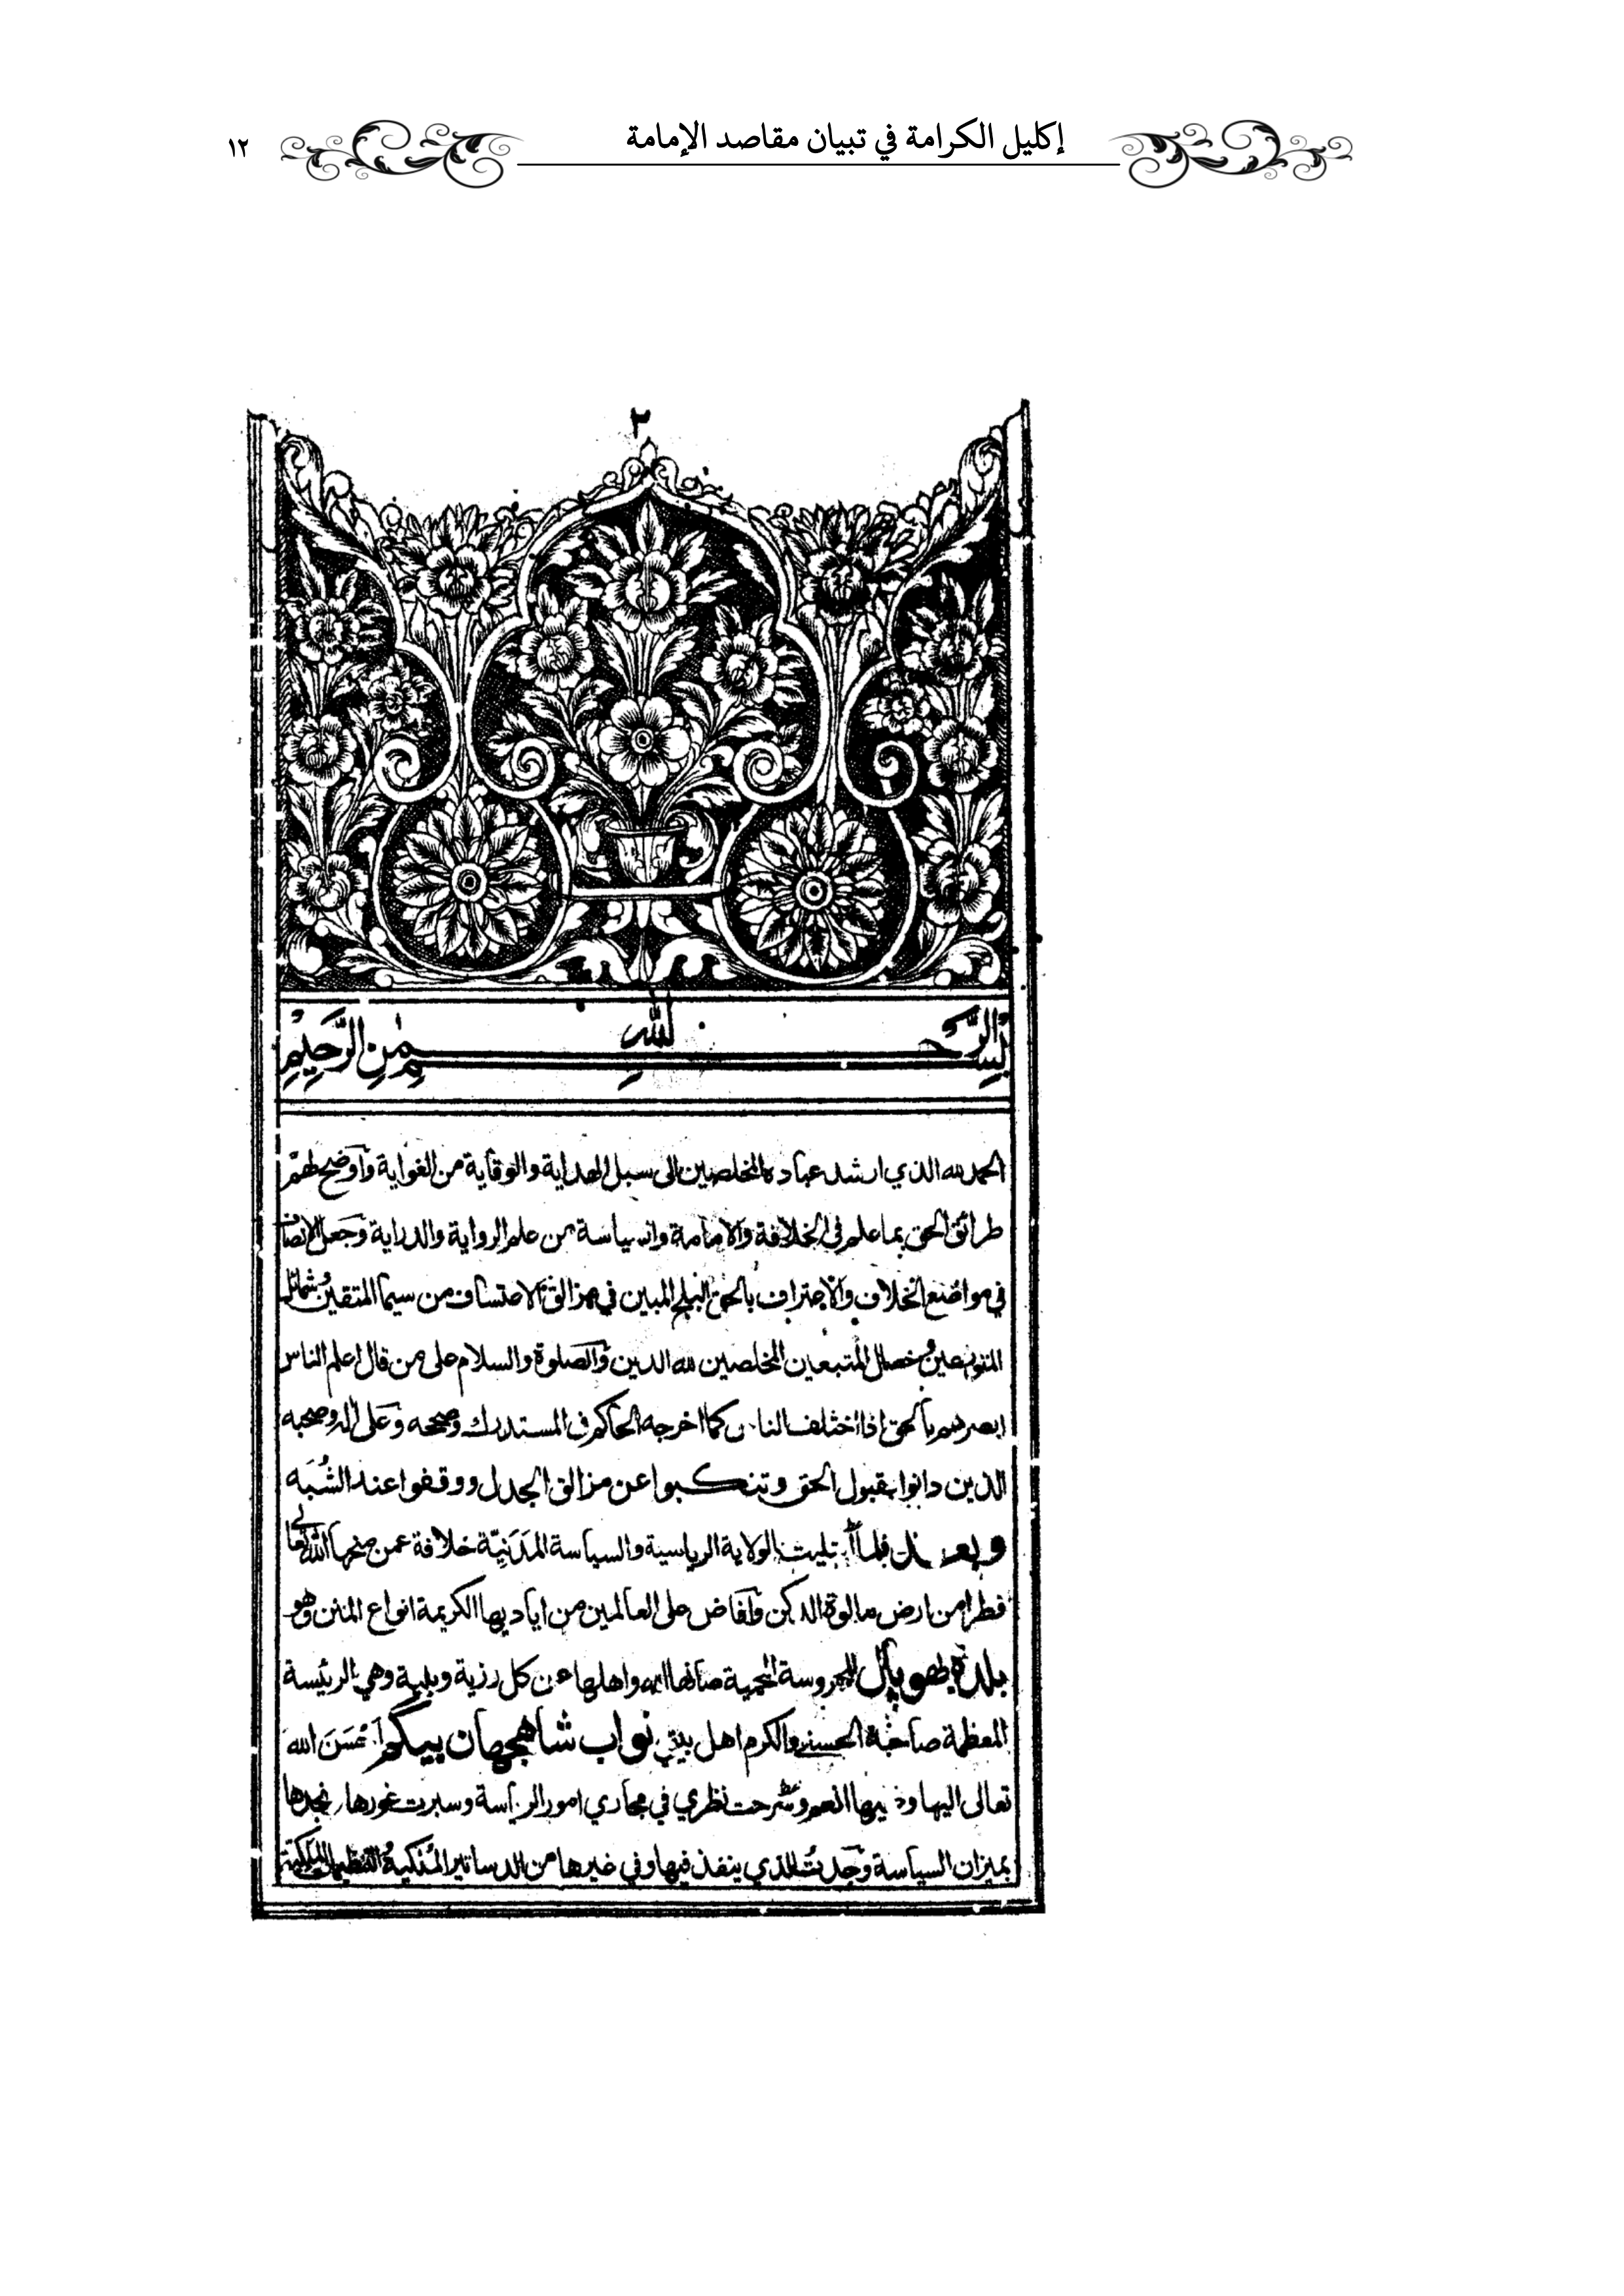 إكليل الكرامة في تبيان مقاصد الإمامة
١٢
٢
بِسْمِ اللهِ الرَّحْمٰنِ الرَّحِيْمِ
الحمد لله الذي ارشد عباده المخلصين الى سبل الهداية والوقاية من الغواية وأوضح لهم
طرائق الحق بما علم في الخلافة والامامة والسياسة من علم الرواية والدراية وجعل الانصاف
في مواضع الخلاف والاعتراف بالحق البلج المبين في مزالق الاعتساف من سيما المتقين وشمائل
خصال المتبعين المخلصين لله الدين والصلوة والسلام على من قال اعلم الناس
ابصرهم بالحق اذا اختلف الناس كما اخرجه الحاكم في المستدرك وصححه وعلى اله وصحبه
الذين دانوا بقبول الحق وتنكبوا عن مزالق الجدل ووقفوا عند الشُبَه
وبعد فلما ابتليت بالولاية الرياسية والسياسة المَدَنِيّة خلافة عمن منحها الله تعالى
قطرا من ارض مالوة الدكن وأفاض على العالمين من اياديها الكريمة انواع المنن وهو
بلدة بهوپال المحروسة المحمية صانها الله واهلها عن كل رزية وبلية وهي الرئيسة
المعظمة صاحبة الحسنى والكرم اهل بيتي نواب شاهجهان بيگم أحْسَنَ الله
تعالى اليها وذويها النعم وسَرحت نظري في مجاري امور الرياسة وسبرت غورها ونجدها
بميزان السياسة وجدت الذي ينفذ فيها وفي غيرها من الدساتير المُلكية والتنظيمات